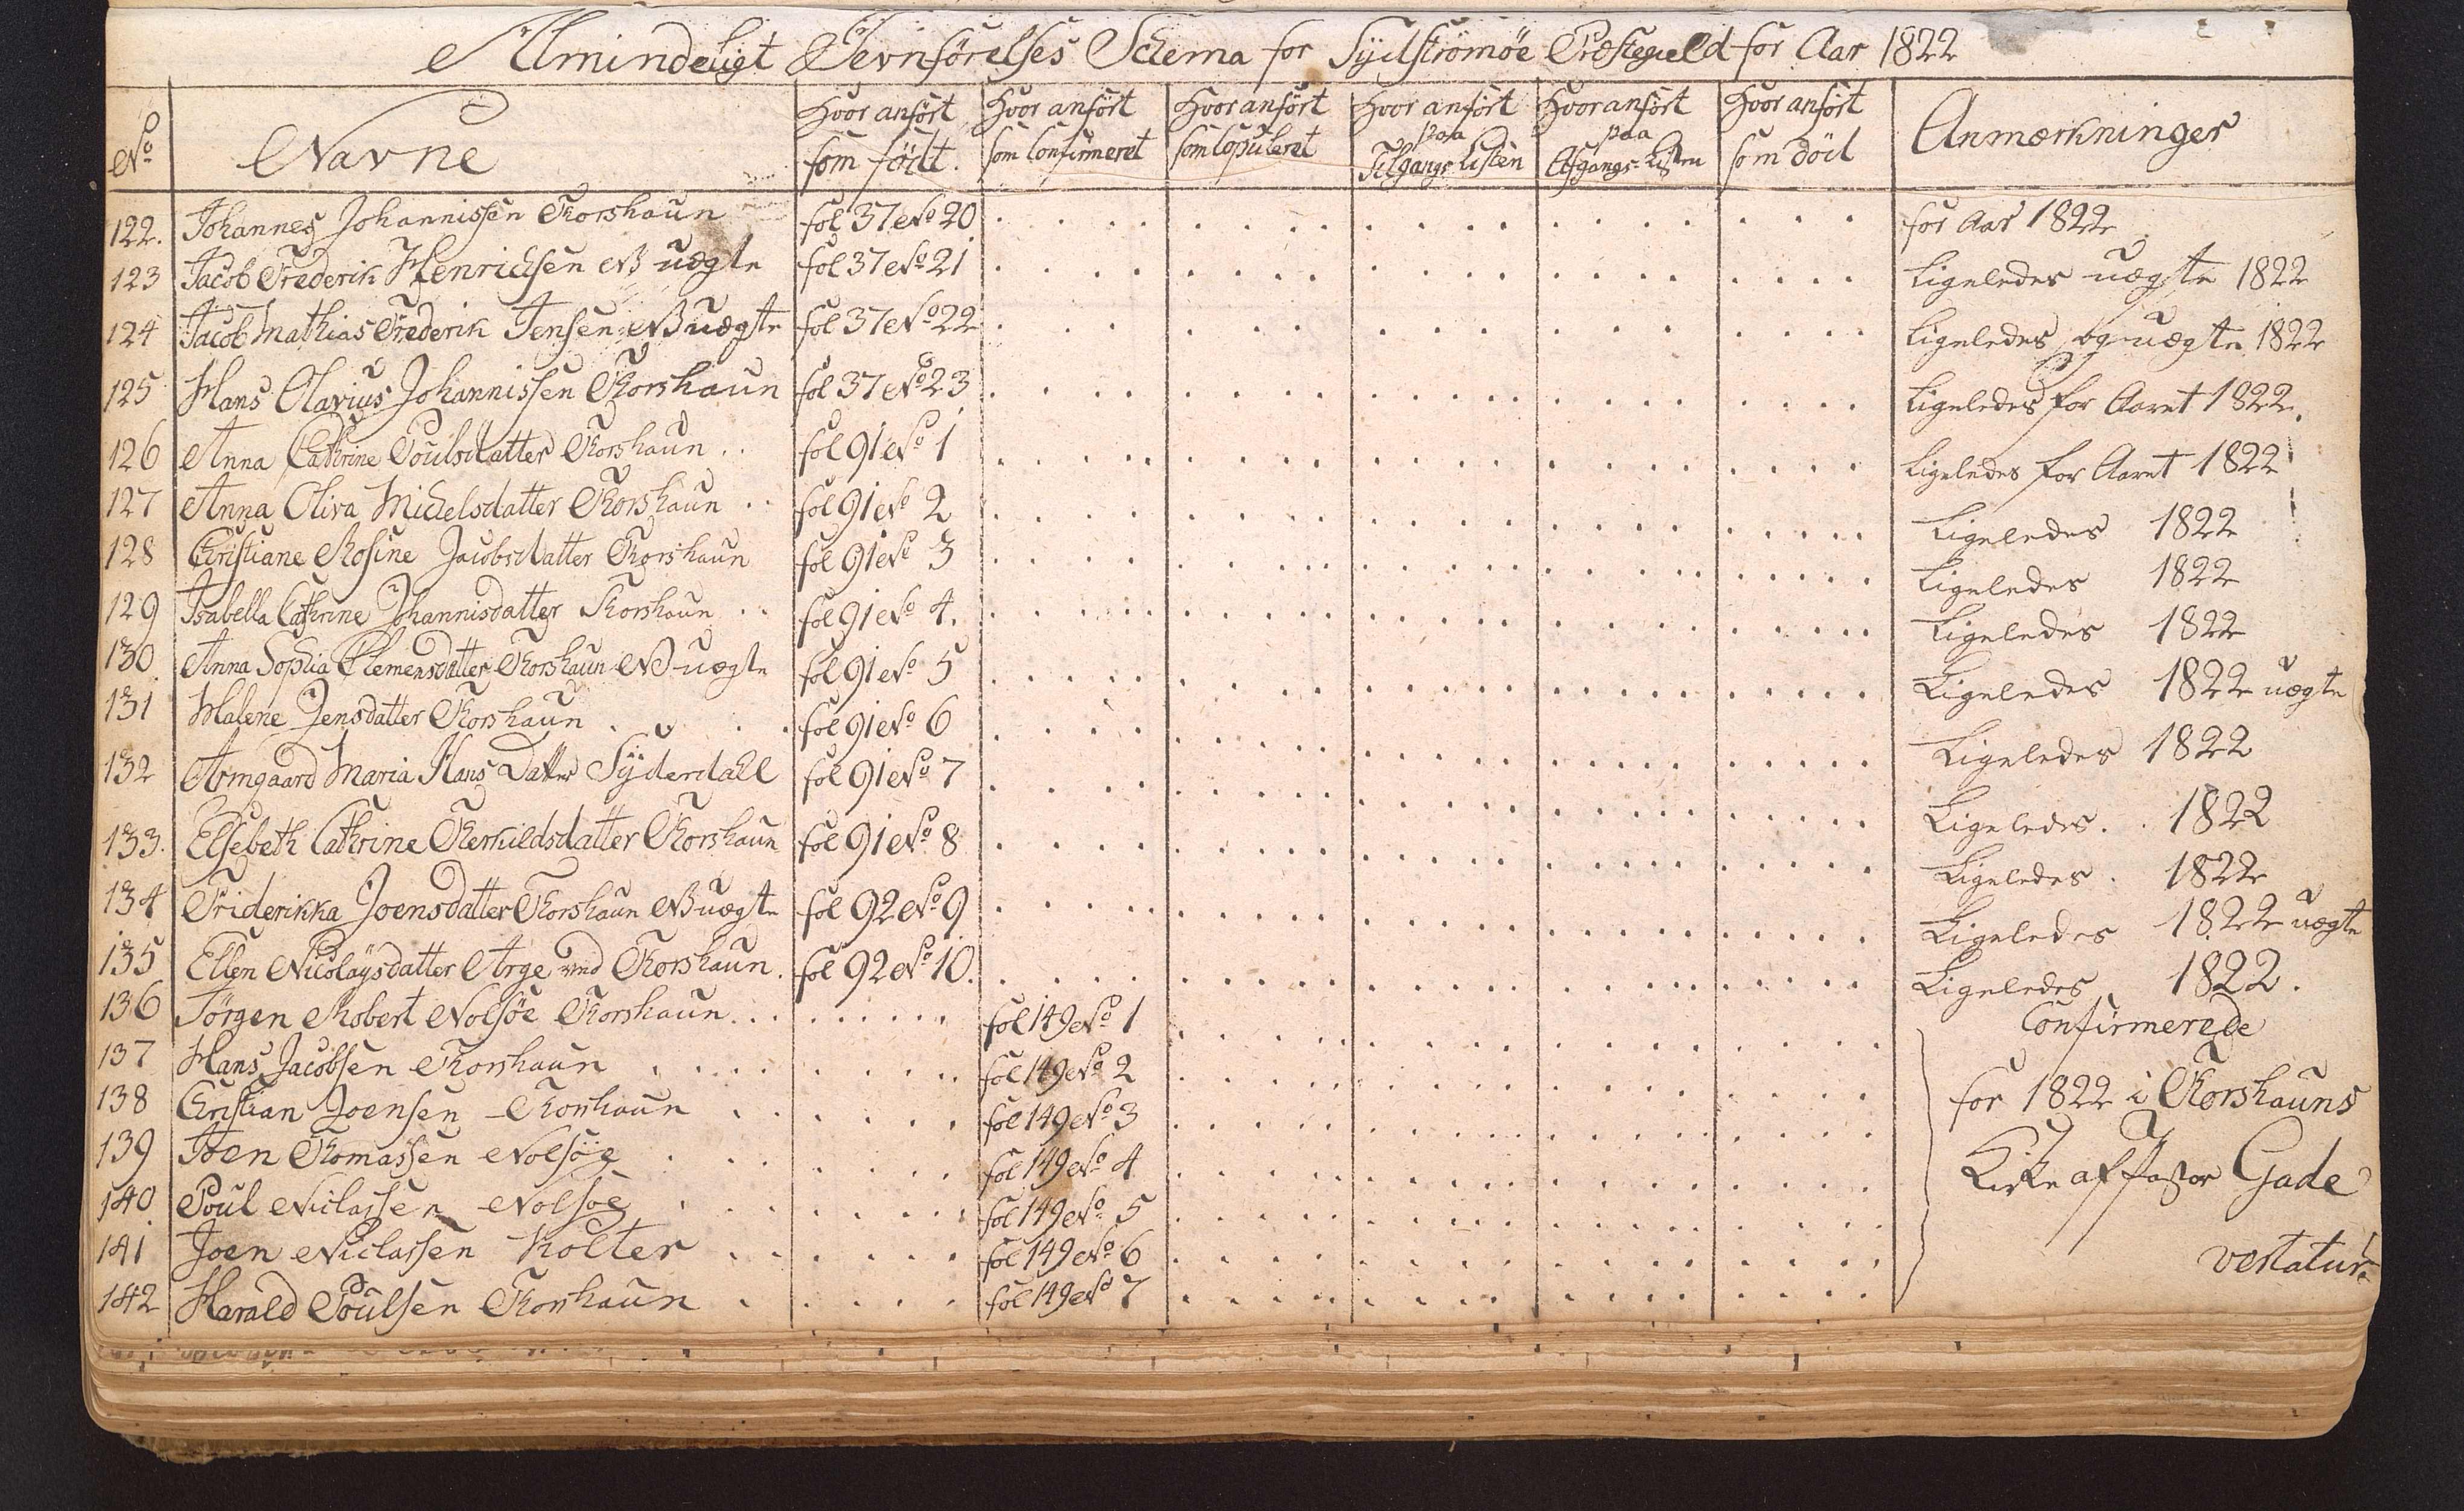 Almindeligt Jevnförelses Schema for Sydströmöe Præstegield for Aar 1822
No Navne Hvor anfört som födt. Hvor anfört som Confirmeret Hvor anfört som Copuleret Hvor anfört paa Tilgangs Listen Hvor anfört paa Afgangs-Listen Hvor anfört som död Anmærkninger
122. Johannes Johannissen Thorshaun fol 37 No 20 for Aar 1822
123 Jacob Frederik Henrichsen NB uægte fol 37 No 21 Ligeledes uægte 1822
124 Jacob Mathias Frederik Jensen NB uægte fol 37 No 22 Ligeledes og uægte 1822
125 Hans Olavius Johannissen Thorshaun fol 37 No 23 Ligeledes for Aaret 1822.
126 Anna Cathrine Poulsdatter Thorshaun fol 91 No 1 Ligeledes for Aaret 1822
127 Anna Oliva Michelsdatter Thorshaun fol 91 No 2 Ligeledes 1822
128 Christiane Rosine Jacobsdatter Thorshaun fol 91 No 3 Ligeledes 1822
129 Isabella Cathrine Johannisdatter Thorshaun fol 91 No 4. Ligeledes 1822
130 Anna Sophia Clemensdatter Thorshaun NB uægte fol 91 No 5 Ligeledes 1822 uægte
131 Malene Jensdatter Thorshaun fol 91 No 6 Ligeledes 1822
132 Armgaard Maria Hans Datter Syderdahl fol 91 No 7 Ligeledes 1822
133. Elsebeth Cathrine Therkildsdatter Thorshaun fol 91 No 8 Ligeledes 1822
134 Friderikka Joensdatter Thorshaun NB uægte fol 92 No 9 Ligeledes 1822 uægte
135 Ellen Nicolaysdatter Arge ved Thorshaun. fol 92 No 10. Ligeledes 1822.
136 Jörgen Robert Nolsöe Thorshaun fol 149 No 1 Confirmerede
137 Hans Jacobsen Thorshaun fol 149 No 2 for 1822 i Thorshauns
138 Christian Joensen Thorshaun fol 149 No 3
139 Joen Thomassen Nolsöe fol 149 No 4 Kirke af Pastor Gade
140 Poul Niclassen Nolsöe fol 149 No 5
141 Joen Niclassen Kolter fol 149 No 6 vertatur
142 Harald Poulsen Thorshaun fol 149 No 7